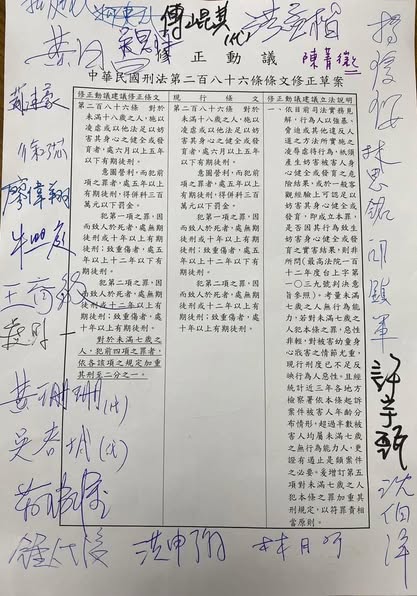 傅崐萁
(代)
修正動議
陳菁徽
中華民國刑法第二百八十六條條文修正草案
修正動議建議修正條文
第二百八十六條 對於
未滿十八歲之人，施以
凌虐或以他法足以妨
害其身心之健全或發
育者，處六月以上五年
以下有期徒刑。
意圖營利，而犯前
項之罪者，處五年以上
有期徒刑，得併科三百
萬元以下罰金。
犯第一項之罪，因
而致人於死者，處無期
徒刑或十年以上有期
徒刑；致重傷者，處五
年以上十二年以下有
期徒刑。
犯第二項之罪，因
而致人於死者，處無期
徒刑或十二年以上有
期徒刑；致重傷者，處
十年以上有期徒刑。
對於未滿七歲之
人，犯前四項之罪者，
依各該項之規定加重
其刑至二分之一。
現行條文
第二百八十六條 對於
未滿十八歲之人，施以
凌虐或以他法足以妨
害其身心之健全或發
育者，處六月以上五年
以下有期徒刑。
意圖營利，而犯前
項之罪者，處五年以上
有期徒刑，得併科三百
萬元以下罰金。
犯第一項之罪，因
而致人於死者，處無期
徒刑或十年以上有期
徒刑；致重傷者，處五
年以上十二年以下有
期徒刑。
犯第二項之罪，因
而致人於死者，處無期
徒刑或十二年以上有
期徒刑；致重傷者，處
十年以上有期徒刑。
修正動議建議立法說明
一、依目前司法實務見
解，行為人以強暴、
脅迫或其他違反人
道之方法所實施之
凌虐或虐待行為，祇須
產生妨害被害人身
心健全或發育之危
險結果，或於一般客
觀經驗上可認足以
妨害身心健全或發
育，即成立本罪，至
是否因其行為致生
妨害身心健全或發
育之實害結果，則非
所問(最高法院一百
十二年度台上字第
一〇三九號判決意
旨參照)。考量未滿
七歲之人無行為能
力，若對未滿七歲之
人犯本條之罪，惡性
非輕，對被害幼童身
心戕害之情節尤重，
現行刑度已不足反
映行為人惡性。且經
統計近三年各地方
檢察署依本條起訴
案件被害人年齡分
布情形，超過半數被
害人均屬未滿七歲
之無行為能力人，更
證有遏止是類案件
之必要。爰增訂第五
項對未滿七歲之人
犯本條之罪加重其
刑規定，以符罪責相
當原則。
林思銘
許宇甄
沈伯洋
廖偉翔
黃珊珊(代)
吳春城(代)
鍾佳濱
洪申翰
林月琴